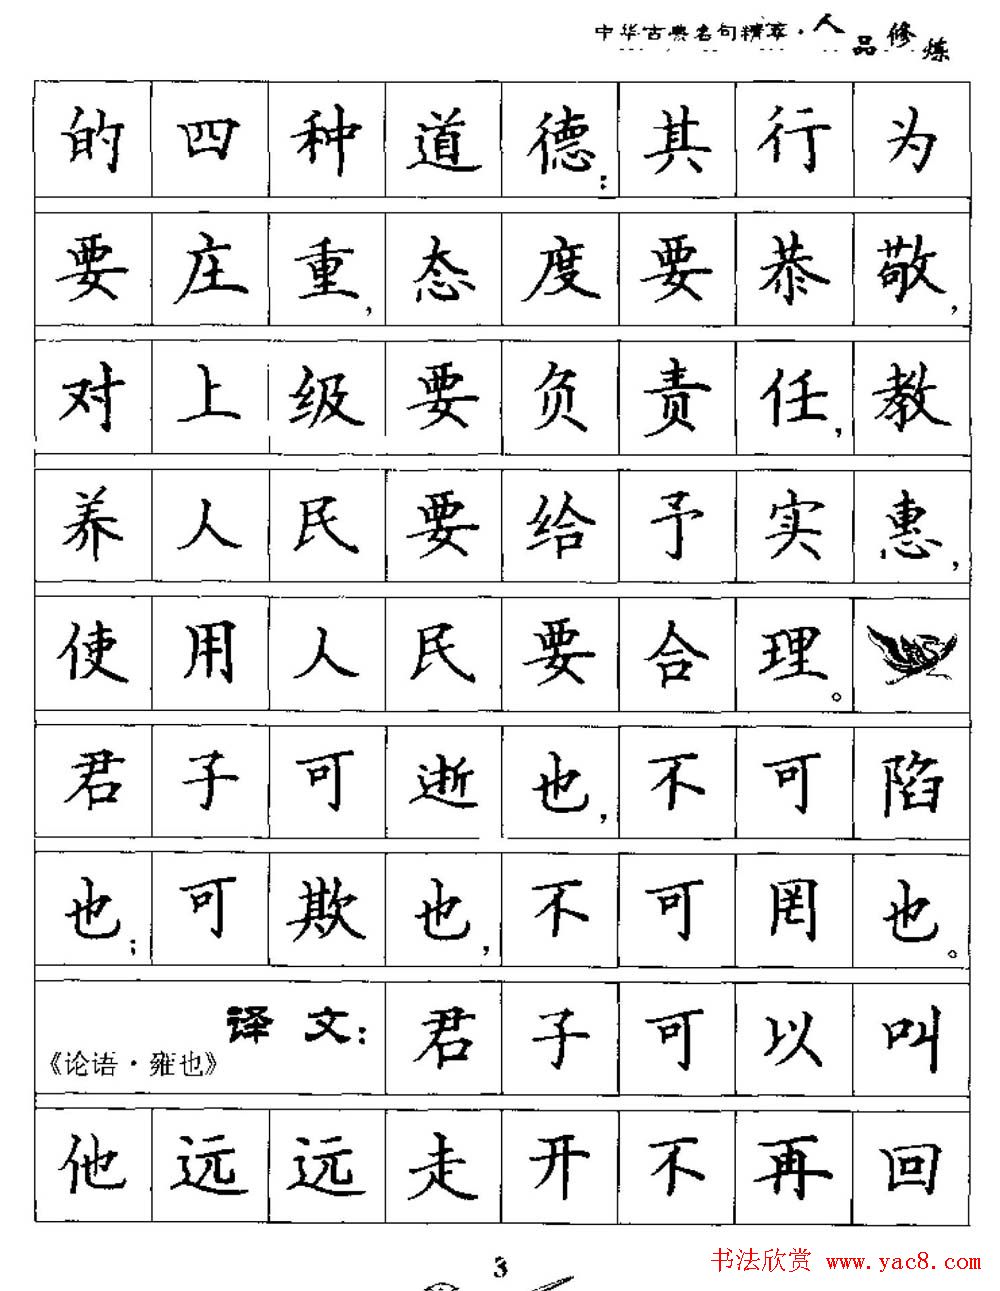 中华古典名句精萃·人品修炼
的四种道德:其行为
要庄重,态度要恭敬,
对上级要负责任,教
养人民要给予实惠,
使用人民要合理。
君子可逝也,不可陷
也;可欺也,不可罔也。
译文:君子可以叫
《论语·雍也》
他远远走开不再回
3
书法欣赏 www.yac8.com